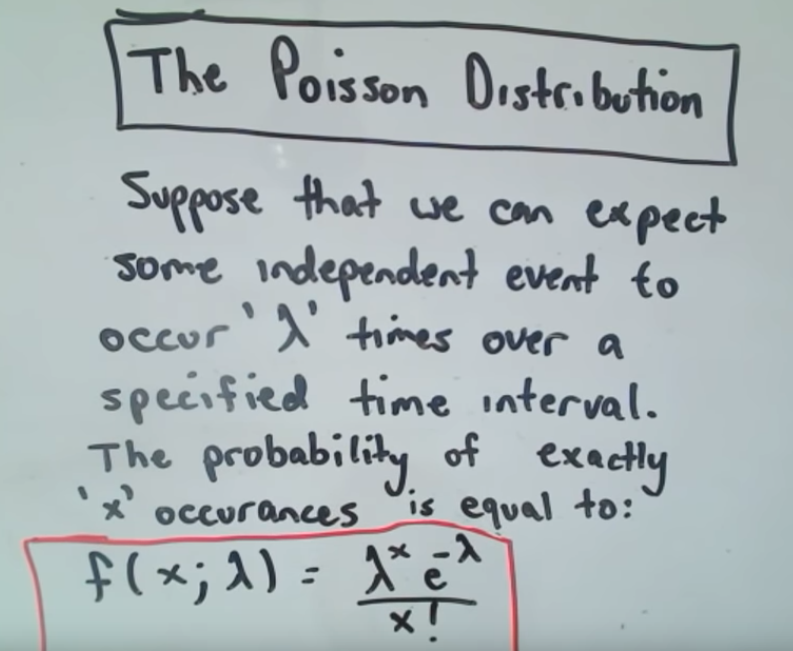 The Poisson Distribution
Suppose that we can expect
some independent event to
occur 'λ' times over a
specified time interval.
The probability of exactly
'x' occurances is equal to:
f(x; λ) = λˣ e^-λ / x!